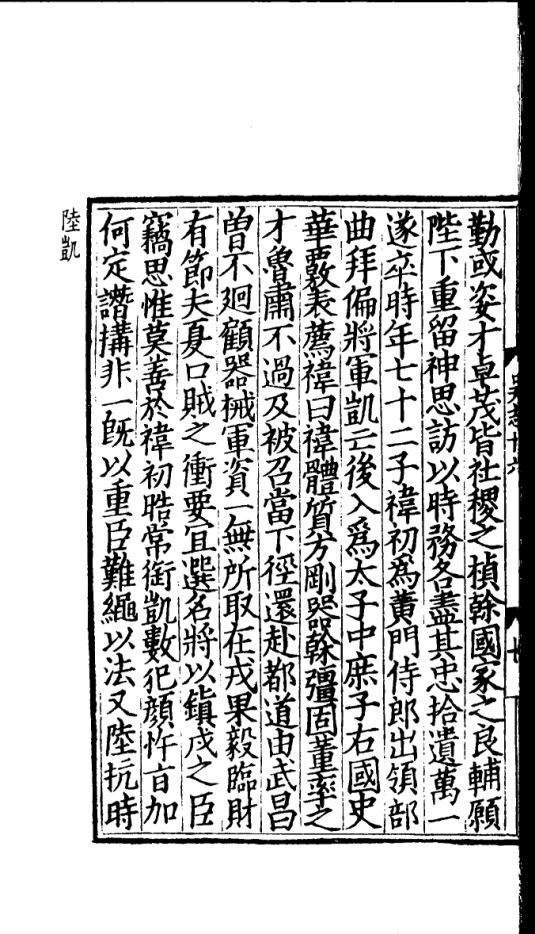 勤或姿才卓茂皆社稷之楨幹國家之良輔願
陛下重留神思訪以時務各盡其忠拾遺萬一
遂卒時年七十二子禕初爲黃門侍郎出領部
曲拜偏將軍凱亡後入爲太子中庶子右國史
華覈表薦禕曰禕體質方剛器幹彊固董率之
才魯肅不過及被召當下徑還赴都道由武昌
曽不迴顧器械軍資一無所取在戎果毅臨財
有節夫夏口賊之衝要宜選名將以鎮戍之臣
竊思惟莫善於禕初晧常銜凱數犯顏忤旨加
何定譖搆非一旣以重臣難繩以法又陸抗時
陸凱